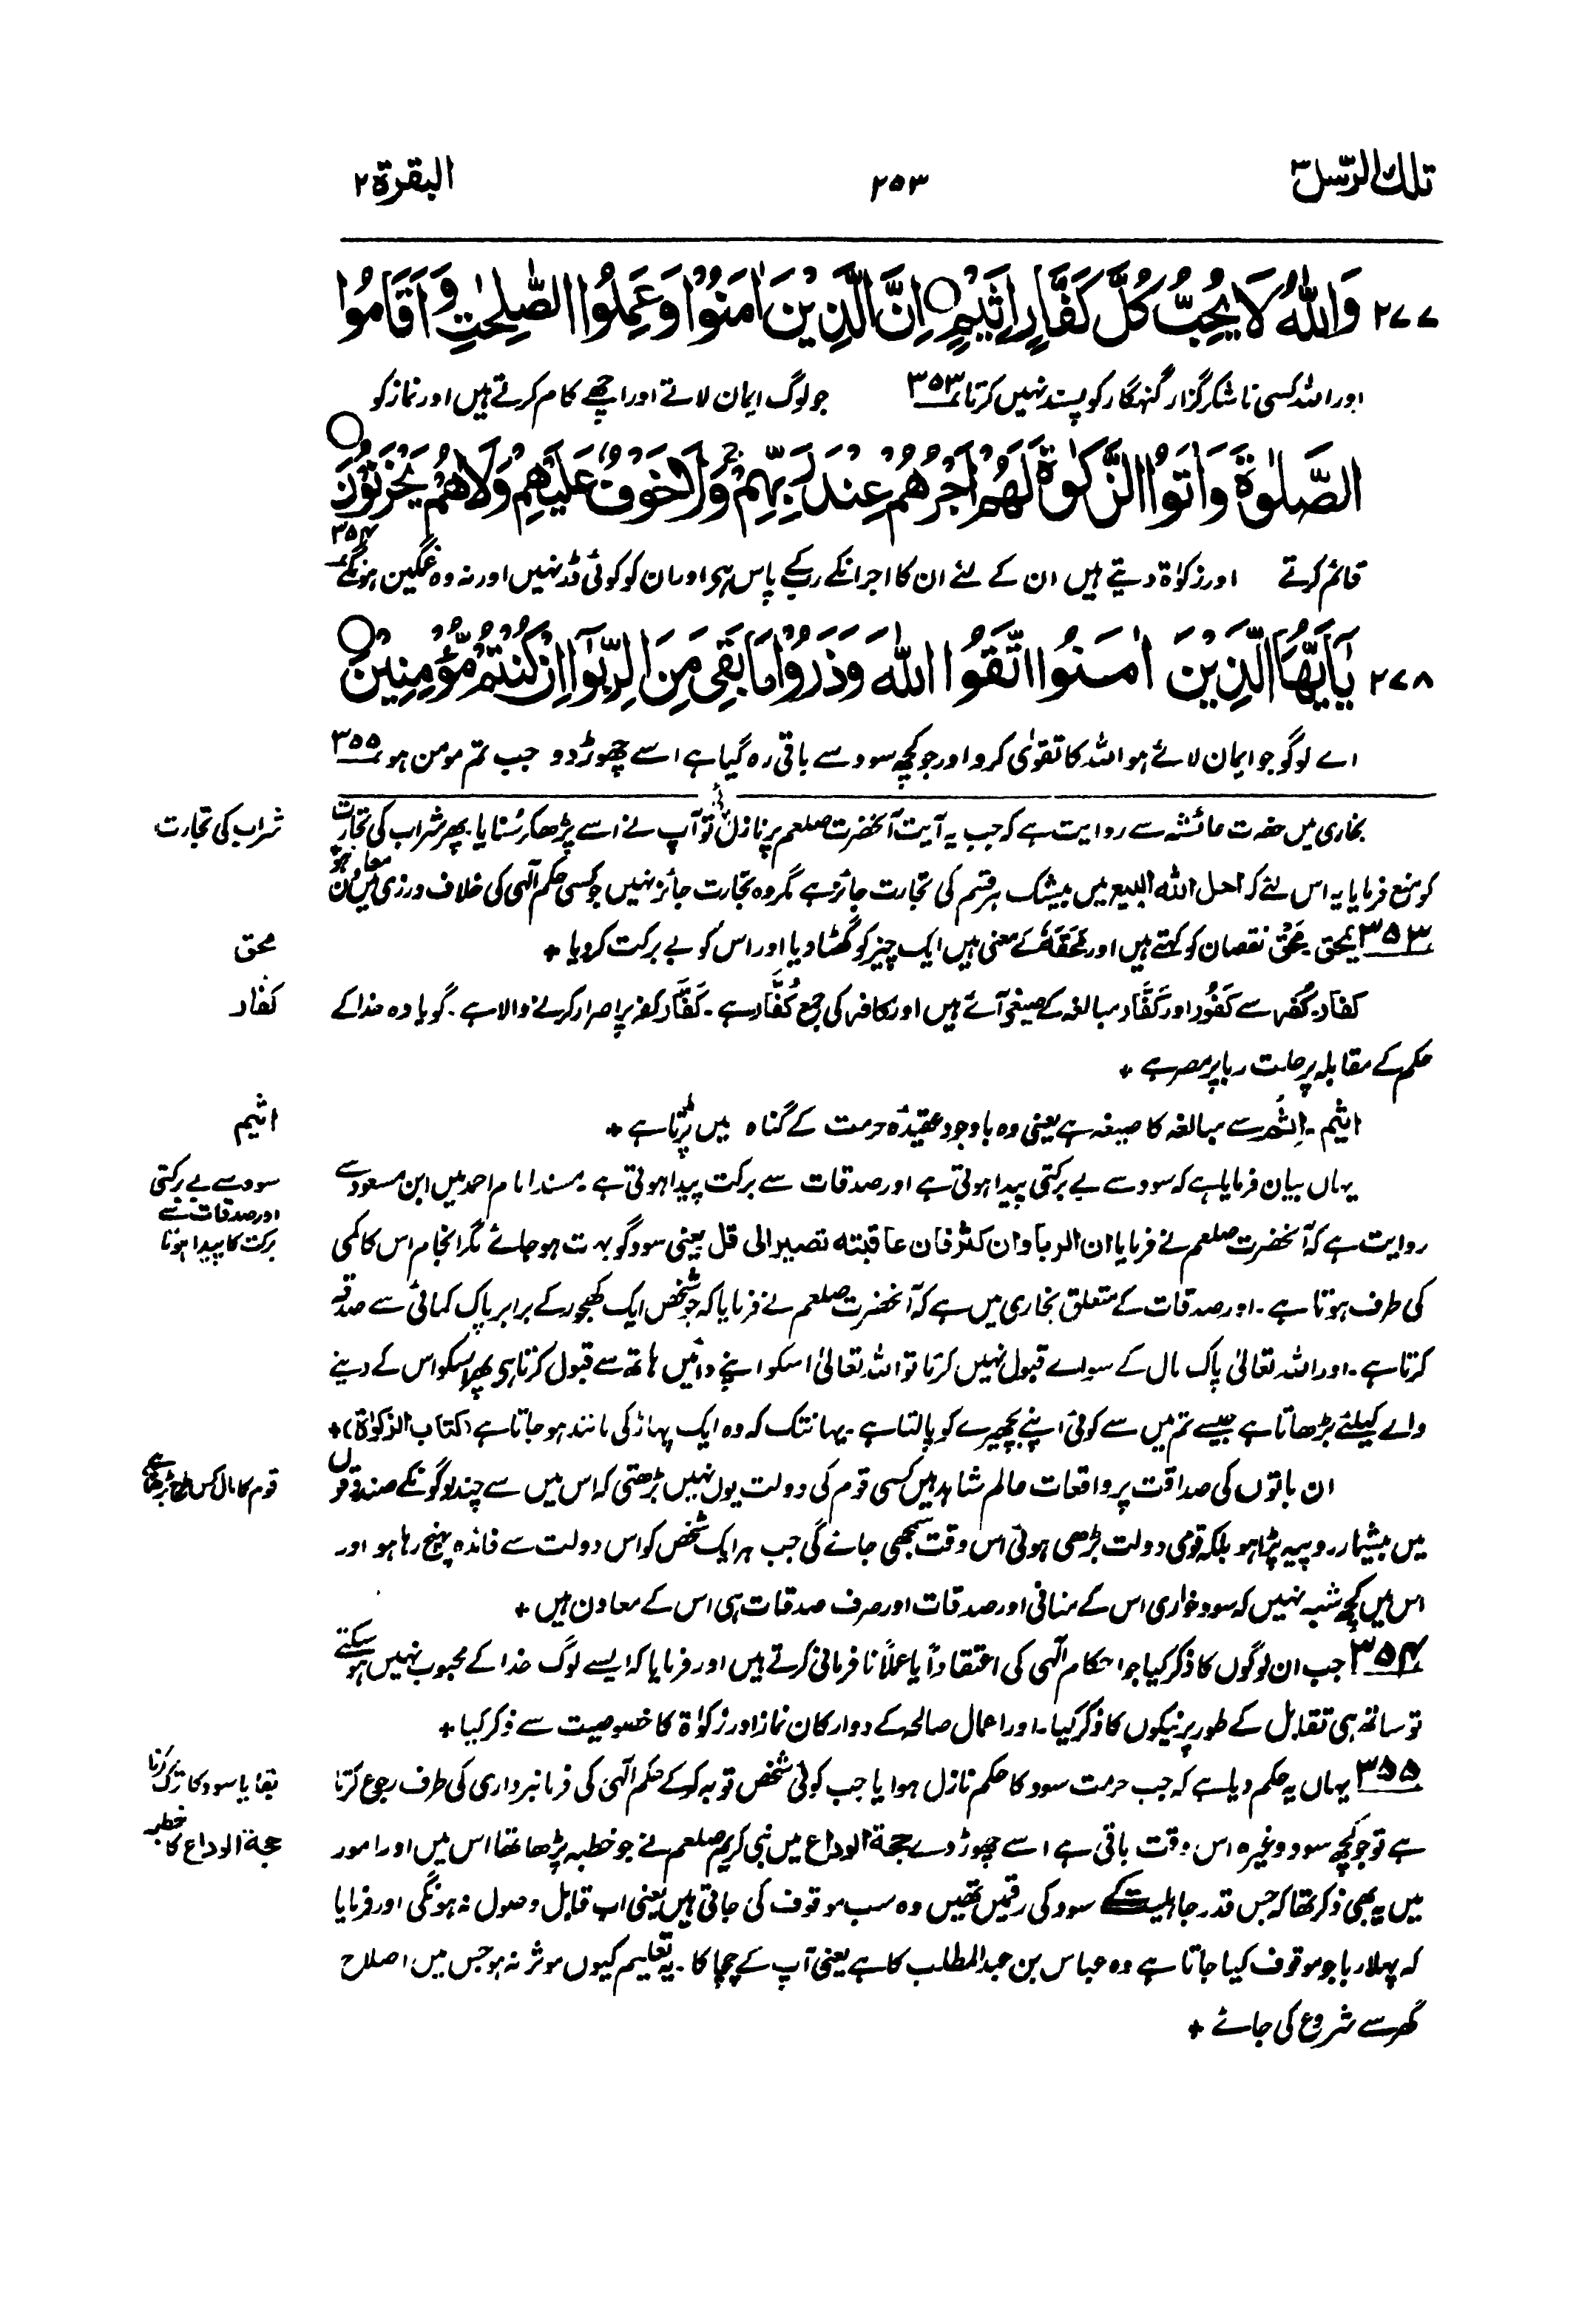 تلك الرّسل ۳
۲۵۳
البقرة ۲
۲۷۷ وَاللّٰهُ لَا يُحِبُّ كُلَّ كَفَّارٍ اَثِيْمٍ ○ اِنَّ الَّذِيْنَ اٰمَنُوْا وَعَمِلُوا الصّٰلِحٰتِ وَاَقَامُوا
اور اللہ کسی ناشکرگزار گنہگار کو پسند نہیں کرتا ۳۵۳ جو لوگ ایمان لاتے اور اچھے کام کرتے ہیں اور نماز کو
الصَّلٰوةَ وَاٰتَوُا الزَّكٰوةَ لَهُمْ اَجْرُهُمْ عِنْدَ رَبِّهِمْ ۚ وَلَا خَوْفٌ عَلَيْهِمْ وَلَا هُمْ يَحْزَنُوْنَ ○
قائم کرتے اور زکوٰۃ دیتے ہیں ان کے لئے ان کا اجر انکے رب کے پاس ہی اور ان کو کوئی ڈر نہیں اور نہ وہ غمگین ہونگے ۳۵۴
۲۷۸ يٰٓاَيُّهَا الَّذِيْنَ اٰمَنُوا اتَّقُوا اللّٰهَ وَذَرُوْا مَا بَقِىَ مِنَ الرِّبٰٓوا اِنْ كُنْتُمْ مُّؤْمِنِيْنَ ○
اے لوگو جو ایمان لائے ہو اللہ کا تقویٰ کرو اور جو کچھ سود سے باقی رہ گیا ہے اسے چھوڑ دو جب تم مومن ہو ۳۵۵
بخاری میں حضرت عائشہ سے روایت ہے کہ جب یہ آیت آنحضرت صلعم پر نازل ہوئی تو آپ نے اسے پڑھکر سُنایا۔ پھر شراب کی تجارت
شراب کی تجارت
کو منع فرمایا یہ اس لئے کہ احل اللہ البیع میں بیشک ہر قسم کی تجارت جائز ہے مگر وہ تجارت جائز نہیں جو کسی حکم الٰہی کی خلاف ورزی میں معاون ہو
۳۵۳ یمحق۔ مَحْق نقصان کو کہتے ہیں اور مَحَقَهٗ کے معنی ہیں ایک چیز کو گھٹا دیا اور اس کو بے برکت کردیا +
محق
کفار۔ کُفر سے کَفُور اور کَفَّار مبالغہ کے صیغے آئے ہیں اور کافر کی جمع کُفَّار ہے۔ کَفَّار کفر پر اصرار کرنے والا ہے۔ گویا وہ خدا کے
کفار
حکم کے مقابلہ پر حلت ربا پر مصر ہے +
اثیم۔ اِثم سے مبالغہ کا صیغہ ہے یعنی وہ باوجود عقیدۂ حرمت کے گناہ میں پڑتا ہے +
اثیم
یہاں بیان فرمایا ہے کہ سود سے بے برکتی پیدا ہوتی ہے اور صدقات سے برکت پیدا ہوتی ہے۔ مسند امام احمد میں ابن مسعود سے
سود سے بے برکتی
اور صدقات سے
برکت کا پیدا ہونا
روایت ہے کہ آنحضرت صلعم نے فرمایا ان الربا وان کثر فان عاقبته تصیر الی قل یعنی سود گو بہت ہو جائے مگر انجام اس کا کمی
کی طرف ہوتا ہے۔ اور صدقات کے متعلق بخاری میں ہے کہ آنحضرت صلعم نے فرمایا کہ جو شخص ایک کھجور کے برابر پاک کمائی سے صدقہ
کرتا ہے۔ اور اللہ تعالیٰ پاک مال کے سوائے قبول نہیں کرتا تو اللہ تعالیٰ اسکو اپنے دائیں ہاتھ سے قبول کرتا ہی پھر اسکو اس کے دینے
والے کیلئے بڑھاتا ہے جیسے تم میں سے کوئی اپنے بچھیرے کو پالتا ہے۔ یہانتک کہ وہ ایک پہاڑ کی مانند ہو جاتا ہے (کتاب الزکوٰۃ) +
ان باتوں کی صداقت پر واقعات عالم شاہد ہیں کسی قوم کی دولت یوں نہیں بڑھتی کہ اس میں سے چند لوگونکے صندوقوں
قوم کا مال کس طرح بڑھتا ہے
میں بیشمار روپیہ پڑا ہو بلکہ قومی دولت بڑھی ہوئی اس وقت سمجھی جائے گی جب ہر ایک شخص کو اس دولت سے فائدہ پہنچ رہا ہو اور
اس میں کچھ شبہ نہیں کہ سود خواری اس کے منافی اور صدقات اور صرف صدقات ہی اس کے معاون ہیں +
۳۵۴ جب ان لوگوں کا ذکر کیا جو احکام الٰہی کی اعتقاداً یا عملاً نافرمانی کرتے ہیں اور فرمایا کہ ایسے لوگ خدا کے محبوب نہیں ہو سکتے
تو ساتھ ہی تقابل کے طور پر نیکوں کا ذکر کیا۔ اور اعمال صالحہ کے دو ارکان نماز اور زکوٰۃ کا خصوصیت سے ذکر کیا +
۳۵۵ یہاں یہ حکم دیا ہے کہ جب حرمت سود کا حکم نازل ہوا یا جب کوئی شخص توبہ کرکے حکم الٰہی کی فرمانبرداری کی طرف رجوع کرتا
بقایا سود کا ترک کرنا
ہے تو جو کچھ سود وغیرہ اس وقت باقی ہے اسے چھوڑ دے حجۃ الوداع میں نبی کریم صلعم نے جو خطبہ پڑھا تھا اس میں اور امور
حجۃ الوداع کا خطبہ
میں یہ بھی ذکر تھا کہ جس قدر جاہلیت کے سود کی رقمیں تھیں وہ سب موقوف کی جاتی ہیں یعنی اب قابل وصول نہ ہونگی اور فرمایا
کہ پہلا ربا جو موقوف کیا جاتا ہے وہ عباس بن عبدالمطلب کا ہے یعنی آپ کے چچا کا۔ یہ تعلیم کیوں موثر نہ ہو جس میں اصلاح
گھر سے شروع کی جائے +